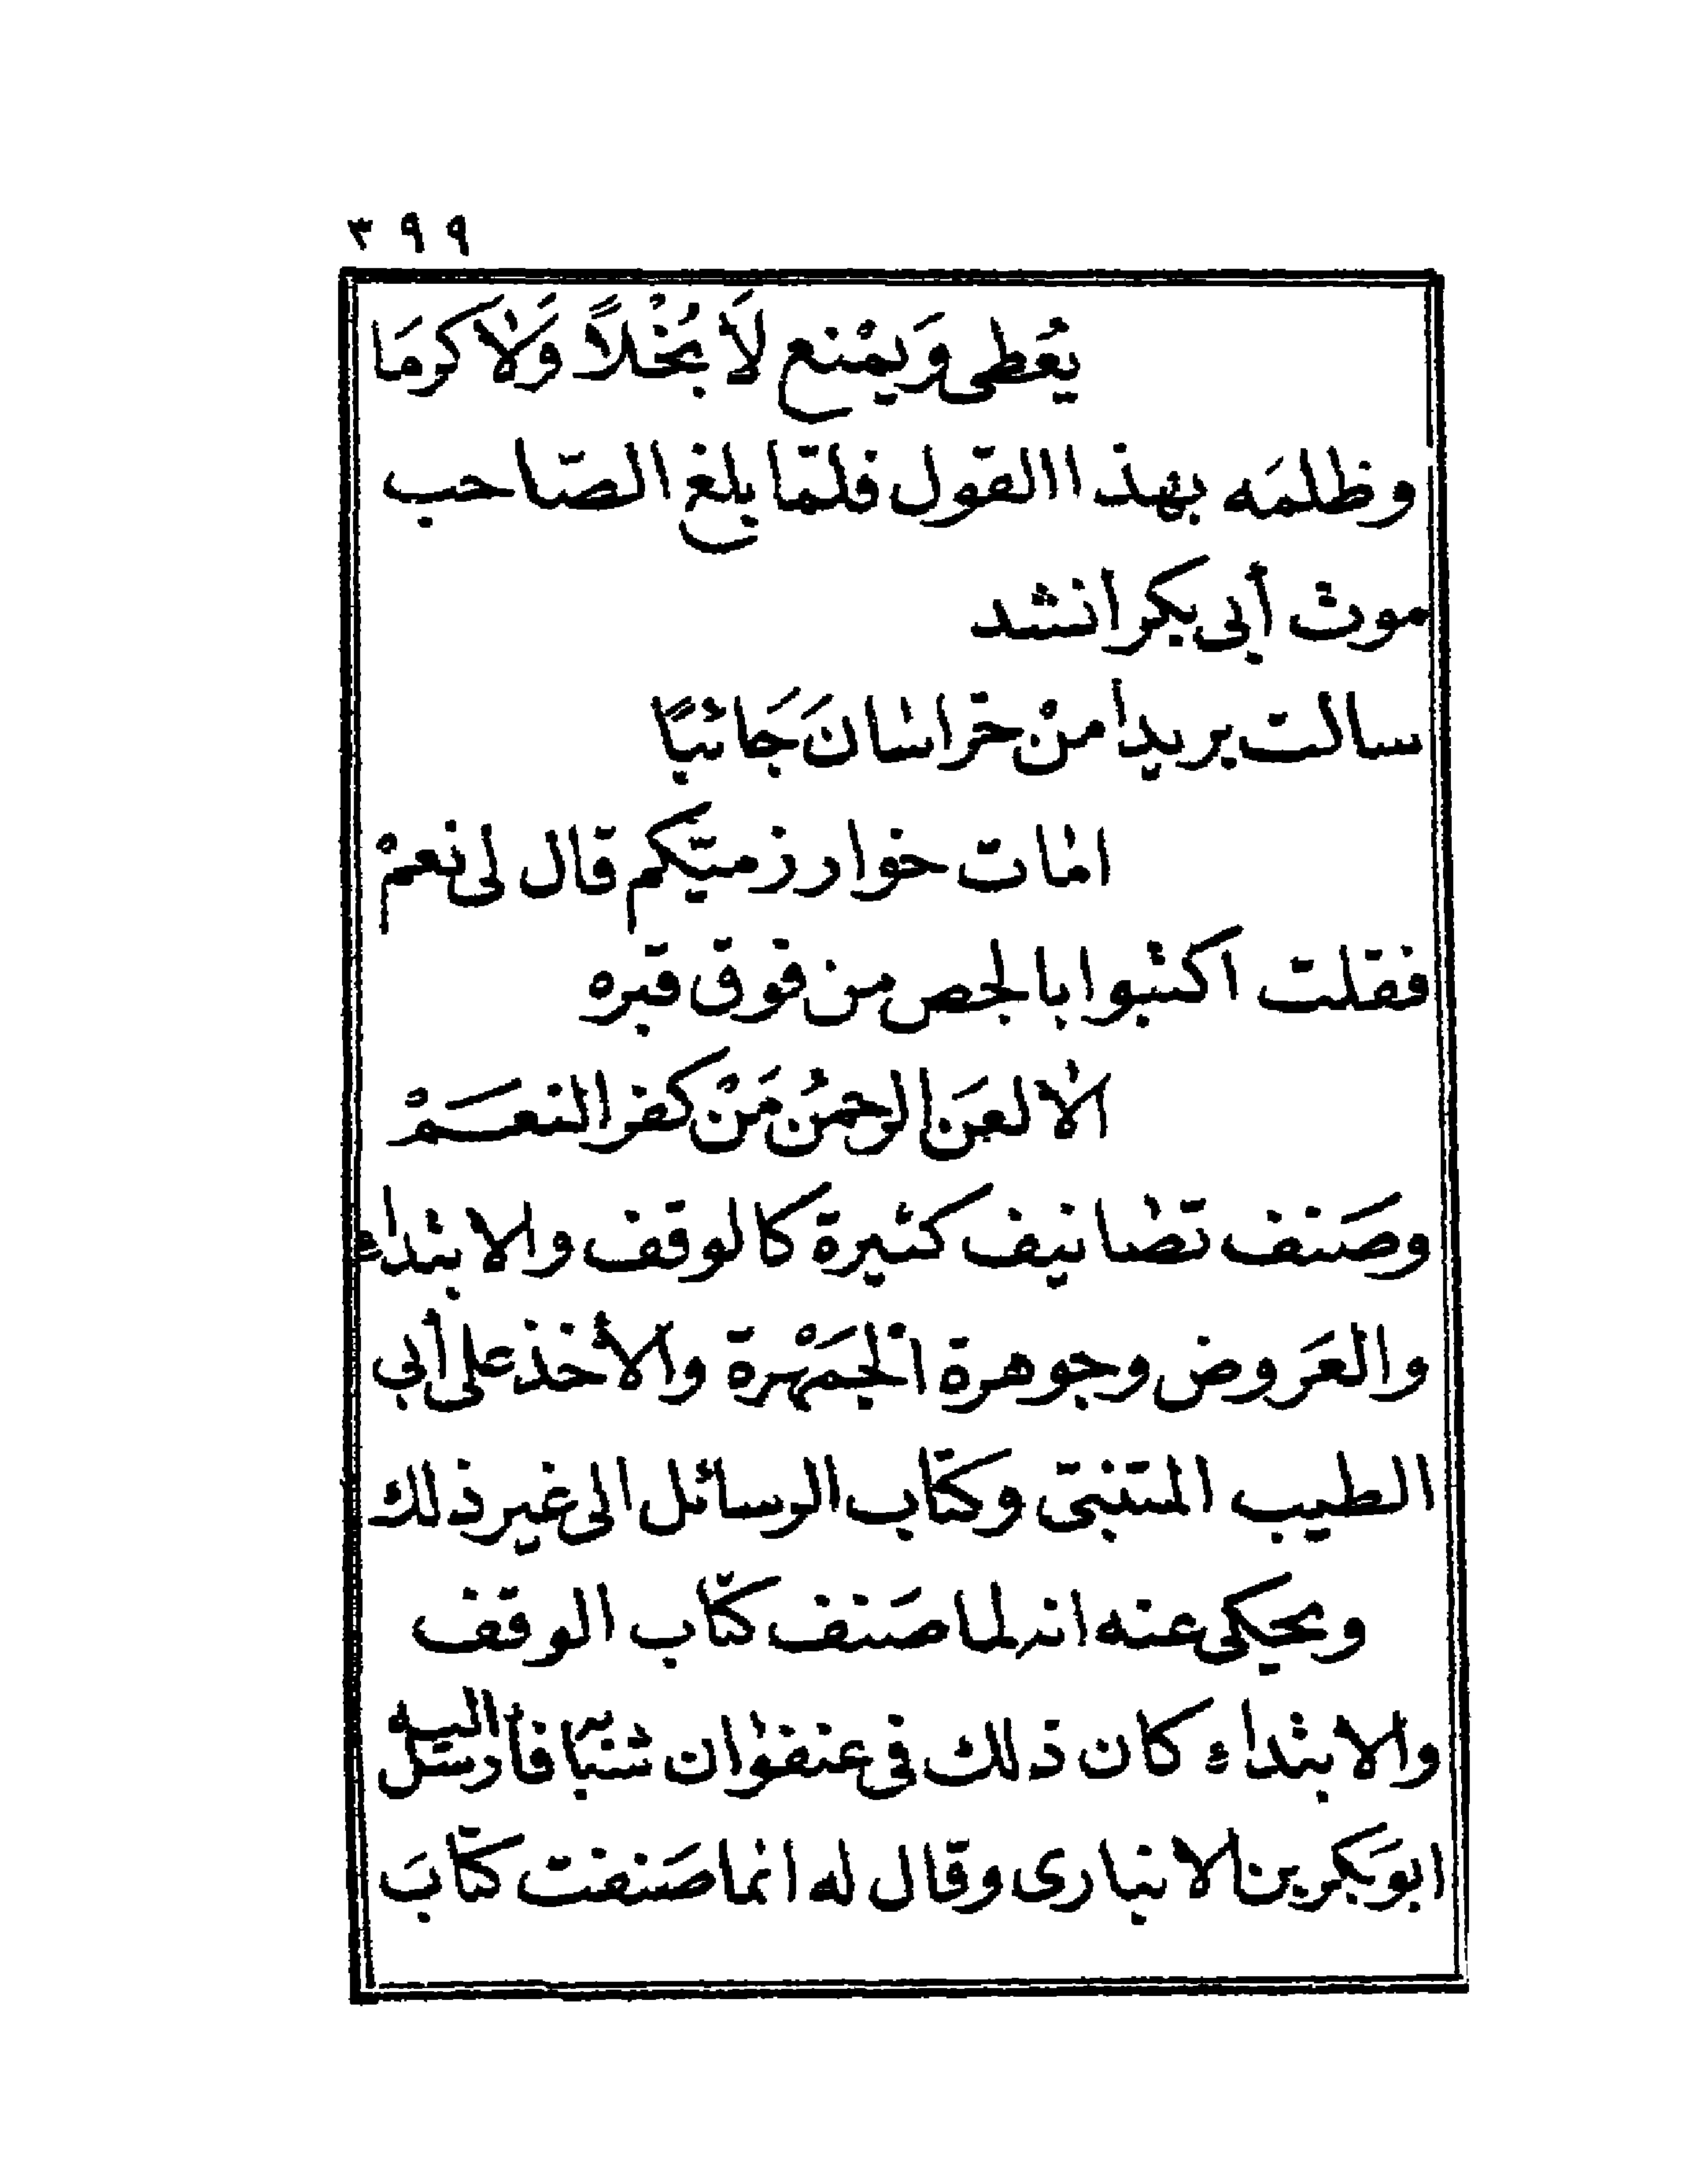 ٣٩٩
يُعْطى وَيَمْنع لَا بُخْلًا وَلَا كرمَا
وظلمَه بهذا القول فلمّا بلغ الصّاحب
موت أبى بكر انشد
سالت بريداً منْ خراسانَ جَائيًا
امات خوارزميّكم قال لى نعمْ
فقلت اكتبوا بالجص من فوق قبره
الا لعَن الرحمنُ مَنْ كفر النعَمْ
وصَنف تصانيف كثيرة كالوقف والابتداء
والعَروض وجوهرة الجمَهْرة والأخذ على أبى
الطيب المتنبّى وكتاب الرسائل الى غير ذلك
ويحكى عنه انه لما صَنف كتاب الوقف
والابتداء كان ذلك فى عنفوان شبابه فأرسل اليه
ابو بَكر بن الانبارى وقال له انما صَنفت كتابَ